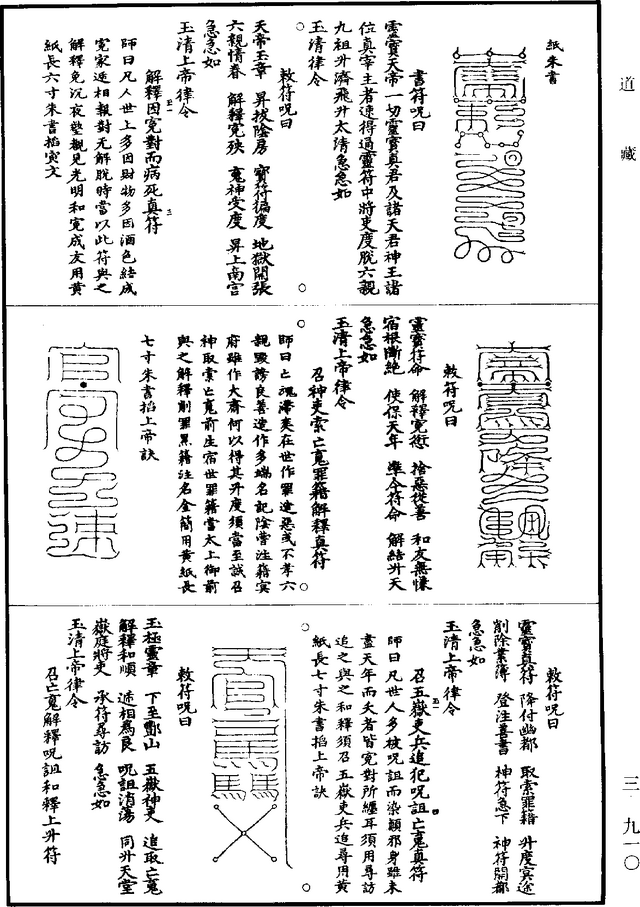 道藏
紙朱書
書符呪曰
靈寶天帝一切靈寶真君及諸天君神王諸
位真宰主者速得過靈符中將吏度脫六親
九祖升濟飛升太清急急如
玉清律令
敕符呪曰
天帝玉章 昇拔陰房 寶符徧度 地獄開張
六親情眷 解釋冤殃 䰟神受度 昇上南宮
急急如
玉清上帝律令
解釋因冤對而病死真符
師曰凡人世上多因財物多因酒色結成
冤家遞相報對无解脫時當以此符與之
解釋免沉夜壑覩見光明和冤成友用黃
紙長六寸朱書掐寅文
敕符呪曰
靈寶符命 解釋冤愆 捨惡從善 和友無㦎
宿根斷絶 使保天年 準令符命 解結升天
急急如
玉清上帝律令
召神吏索亡䰟罪籍解釋真符
師曰亡魂滯爽在世作罪造惡或不孝六
親毀謗良善造作多端名記陰曹注籍冥
府雖作大齋何以得其升度須當至誠召
神取索亡䰟前生宿世罪籍當太上御前
與之解釋削罪黑籍注名金簡用黃紙長
七寸朱書掐上帝訣
敕符呪曰
靈寶真符 降付幽都 取索罪籍 升度冥途
削除業簿 登注善書 神符急下 神符開都
急急如
玉清上帝律令
召五嶽吏兵追犯呪詛亡䰟真符
師曰凡世人多被呪詛而染顛邪身雖未
盡天年而夭者皆冤對所纏耳須用尋訪
追之與之和釋須召五嶽吏兵追尋用黃
紙長七寸朱書掐上帝訣
敕符呪曰
玉極靈章 下至酆山 五嶽神吏 追取亡䰟
解釋和順 遞相為良 呪詛消蕩 同升天堂
嶽庭將吏 承符尋訪 急急如
玉清上帝律令
召亡䰟解釋呪詛和釋上升符
三·九一〇